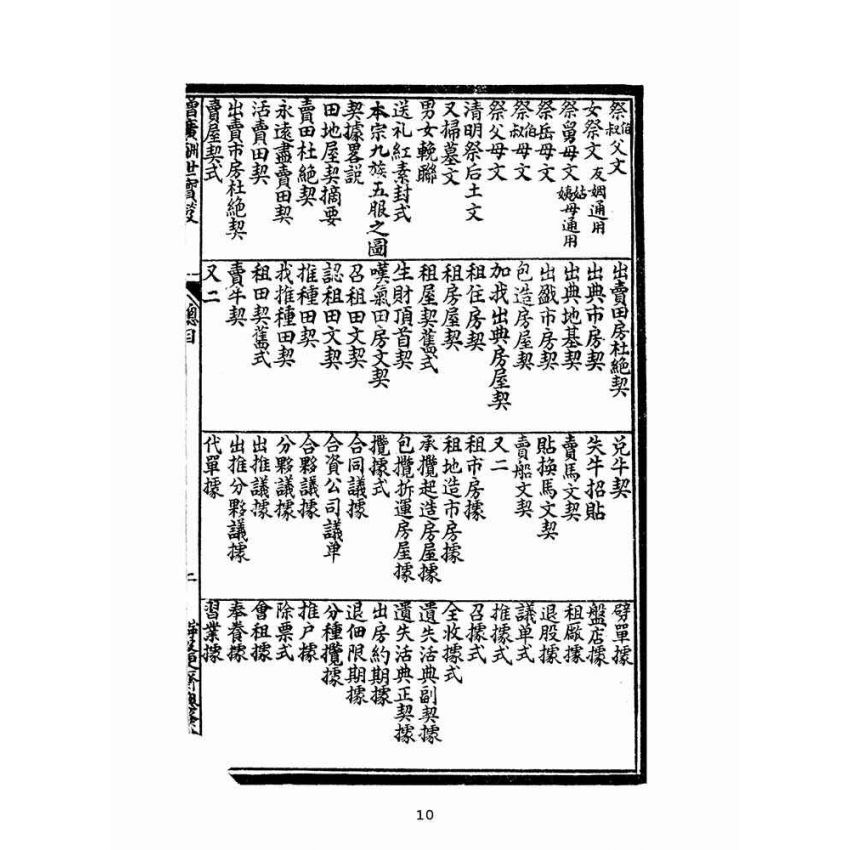 祭伯叔父文
女祭文友姻通用
祭舅母文姑姨母通用
祭岳母文
祭伯叔母文
祭父母文
清明祭后土文
又掃墓文
男女輓聯
送礼紅素封式
本宗九族五服之圖
契據畧説
田地屋契摘要
賣田杜絶契
永遠盡賣田契
活賣田契
出賣市房杜絶契
賣屋契式
出賣田房杜絶契
出典市房契
出典地基契
出盛市房契
包造房屋契
加找出典房屋契
租住房契
租房屋契
租屋契舊式
生財頂首契
嘆氣田房文契
召租田文契
認租田文契
推種田契
找推種田契
租田契舊式
賣牛契
又二
兌牛契
失牛招貼
賣馬文契
貼換馬文契
賣船文契
又二
租市房據
租地造市房據
承攬起造房屋據
包攬拆運房屋據
攬據式
合同議據
合資公司議单
合夥議據
分夥議據
出推議據
出推分夥議據
代單據
劈單據
盤店據
租廠據
退股據
議单式
推據式
召據式
全收據式
遺失活典副契據
遺失活典正契據
出房約期據
退佃限期據
分種攬據
推户據
除票式
會租據
奉養據
習業據
增廣酬世寶
總目
二
10